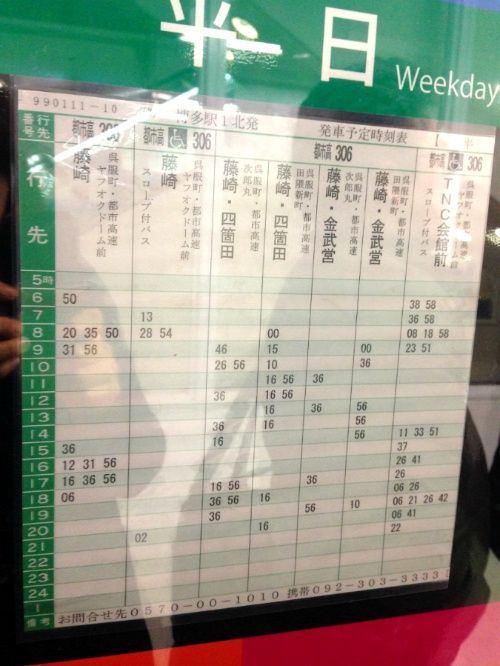 平日
Weekday
990111-10 博多駅1北発 発車予定時刻表
番号 行先 都市高 306 都市高 306 都市高306 都市高 306
行先
藤崎 呉服町・都市高速 ヤフオクドーム前
藤崎 呉服町・都市高速 ヤフオクドーム前 スロープ付バス
藤崎・四箇田 呉服町・都市高速 次郎丸
藤崎・四箇田 呉服町・都市高速 田隈新町
藤崎・金武営 呉服町・都市高速 次郎丸
藤崎・金武営 呉服町・都市高速 田隈新町
TNC会館前 呉服町・都市高速 ヤフオクドーム前 スロープ付バス
5時
6 50 38 58
7 13 36 58
8 20 35 50 28 54 00 08 18 58
9 31 56 46 15 00 23 51
10 26 56 10 36
11 16 56 36
12 36 16 56
13 16 36 56
14 36 16 56 11 33 51
15 36 16 37
16 12 31 56 26 41
17 16 36 56 16 56 36 26
18 06 36 56 16 06 26
19 36 56 10 06 21 26 42
20 16 06 41
21 02 22
22
23
24
1
備考 お問合せ先0570-00-1010 携帯092-303-3333